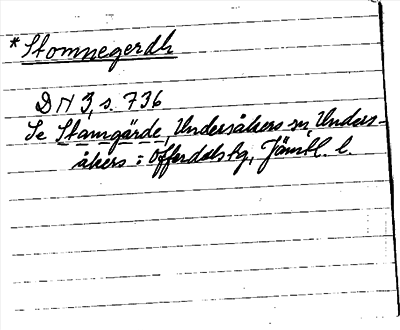 *Stomnegerdh
DN 3, s. 736
Se Stamgärde, Undersåkers sn, Unders-
åkers o Offerdals tg, Jämtl. l.